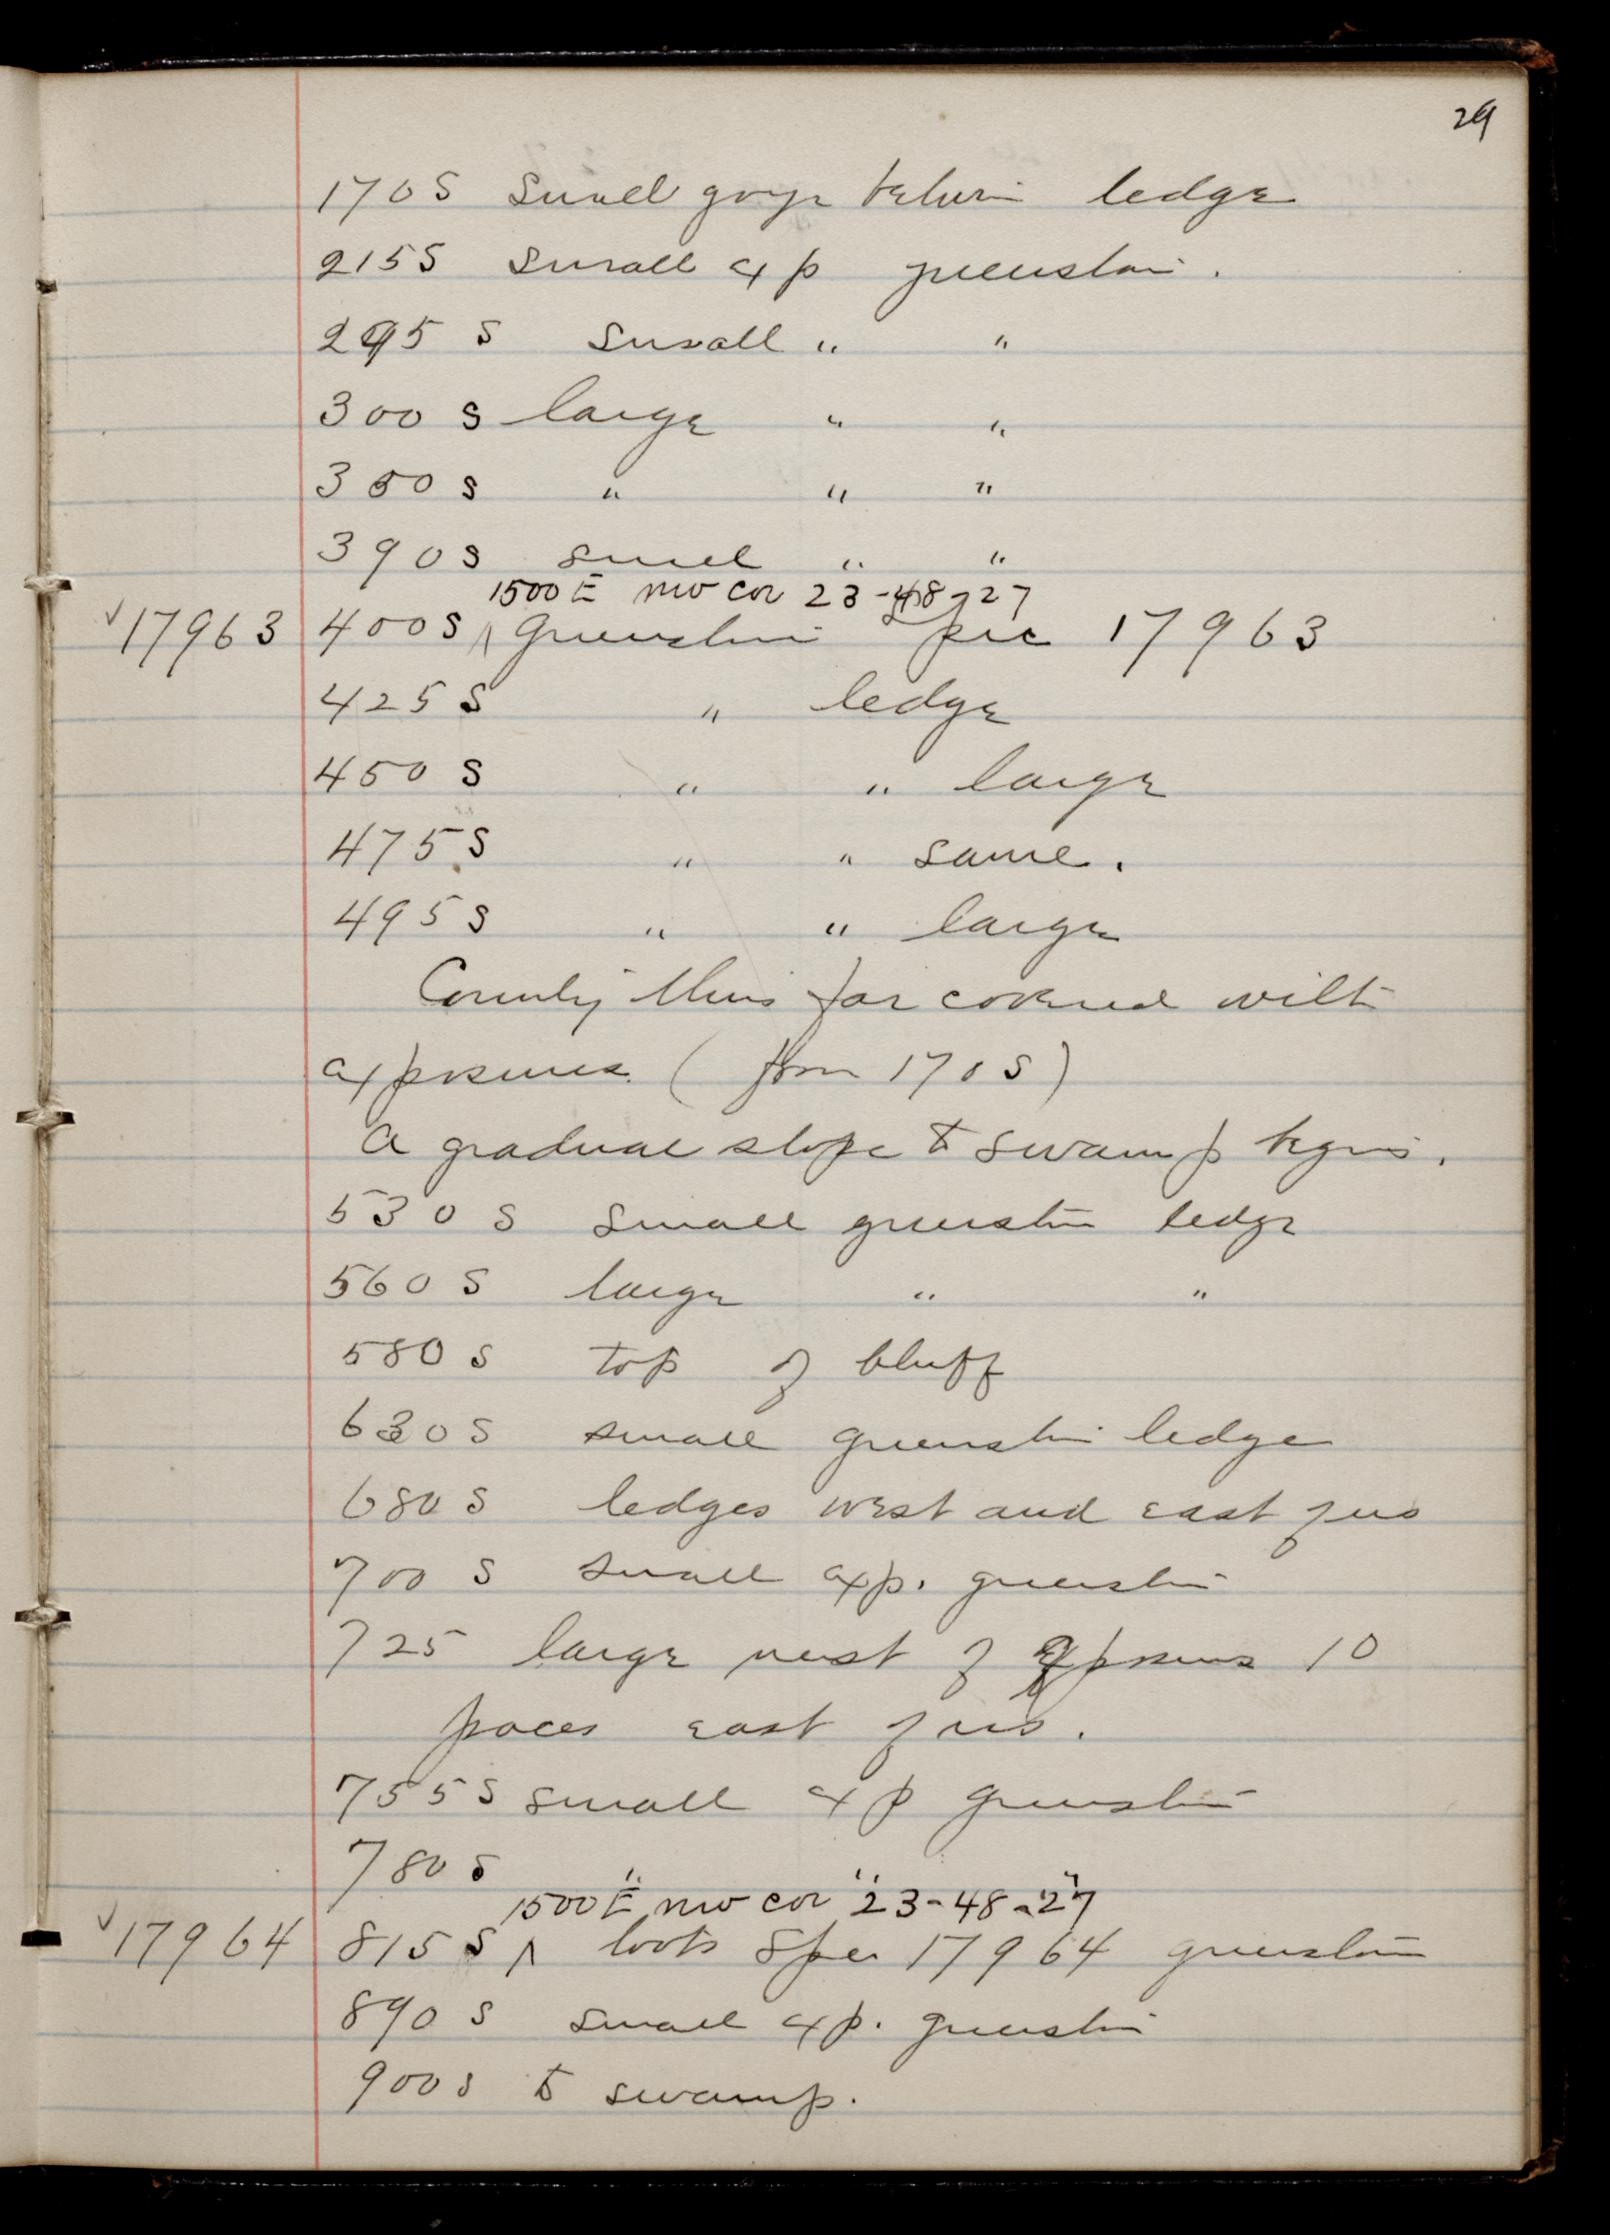 29
170 S Small gorge between ledge
215 S small exp greenstone.
295 S Small " "
300 S large " "
350 S " " "
390 S small " "
1500 E NW cor 23-48-27
✓17963 400 S ^ greenstone Spec 17963
425 S " ledge
450 S " " large
475 S " " same.
495 S " " large
Country thus far covered with
exposures (from 170 S)
A gradual slope to swamp begins.
530 S small greenstone ledge
560 S large " "
580 S top of bluff
630 S small greenstone ledge
680 S ledges west and east of us
700 S small exp. greenstone
725 large nest of exposures 10
paces east of us.
755 S small exp greenstone
780 S " " "
1500 E NW cor 23-48-27
✓17964 815 S ^ took Spec 17964 greenstone
890 S small exp. greenstone
900 S to swamp.